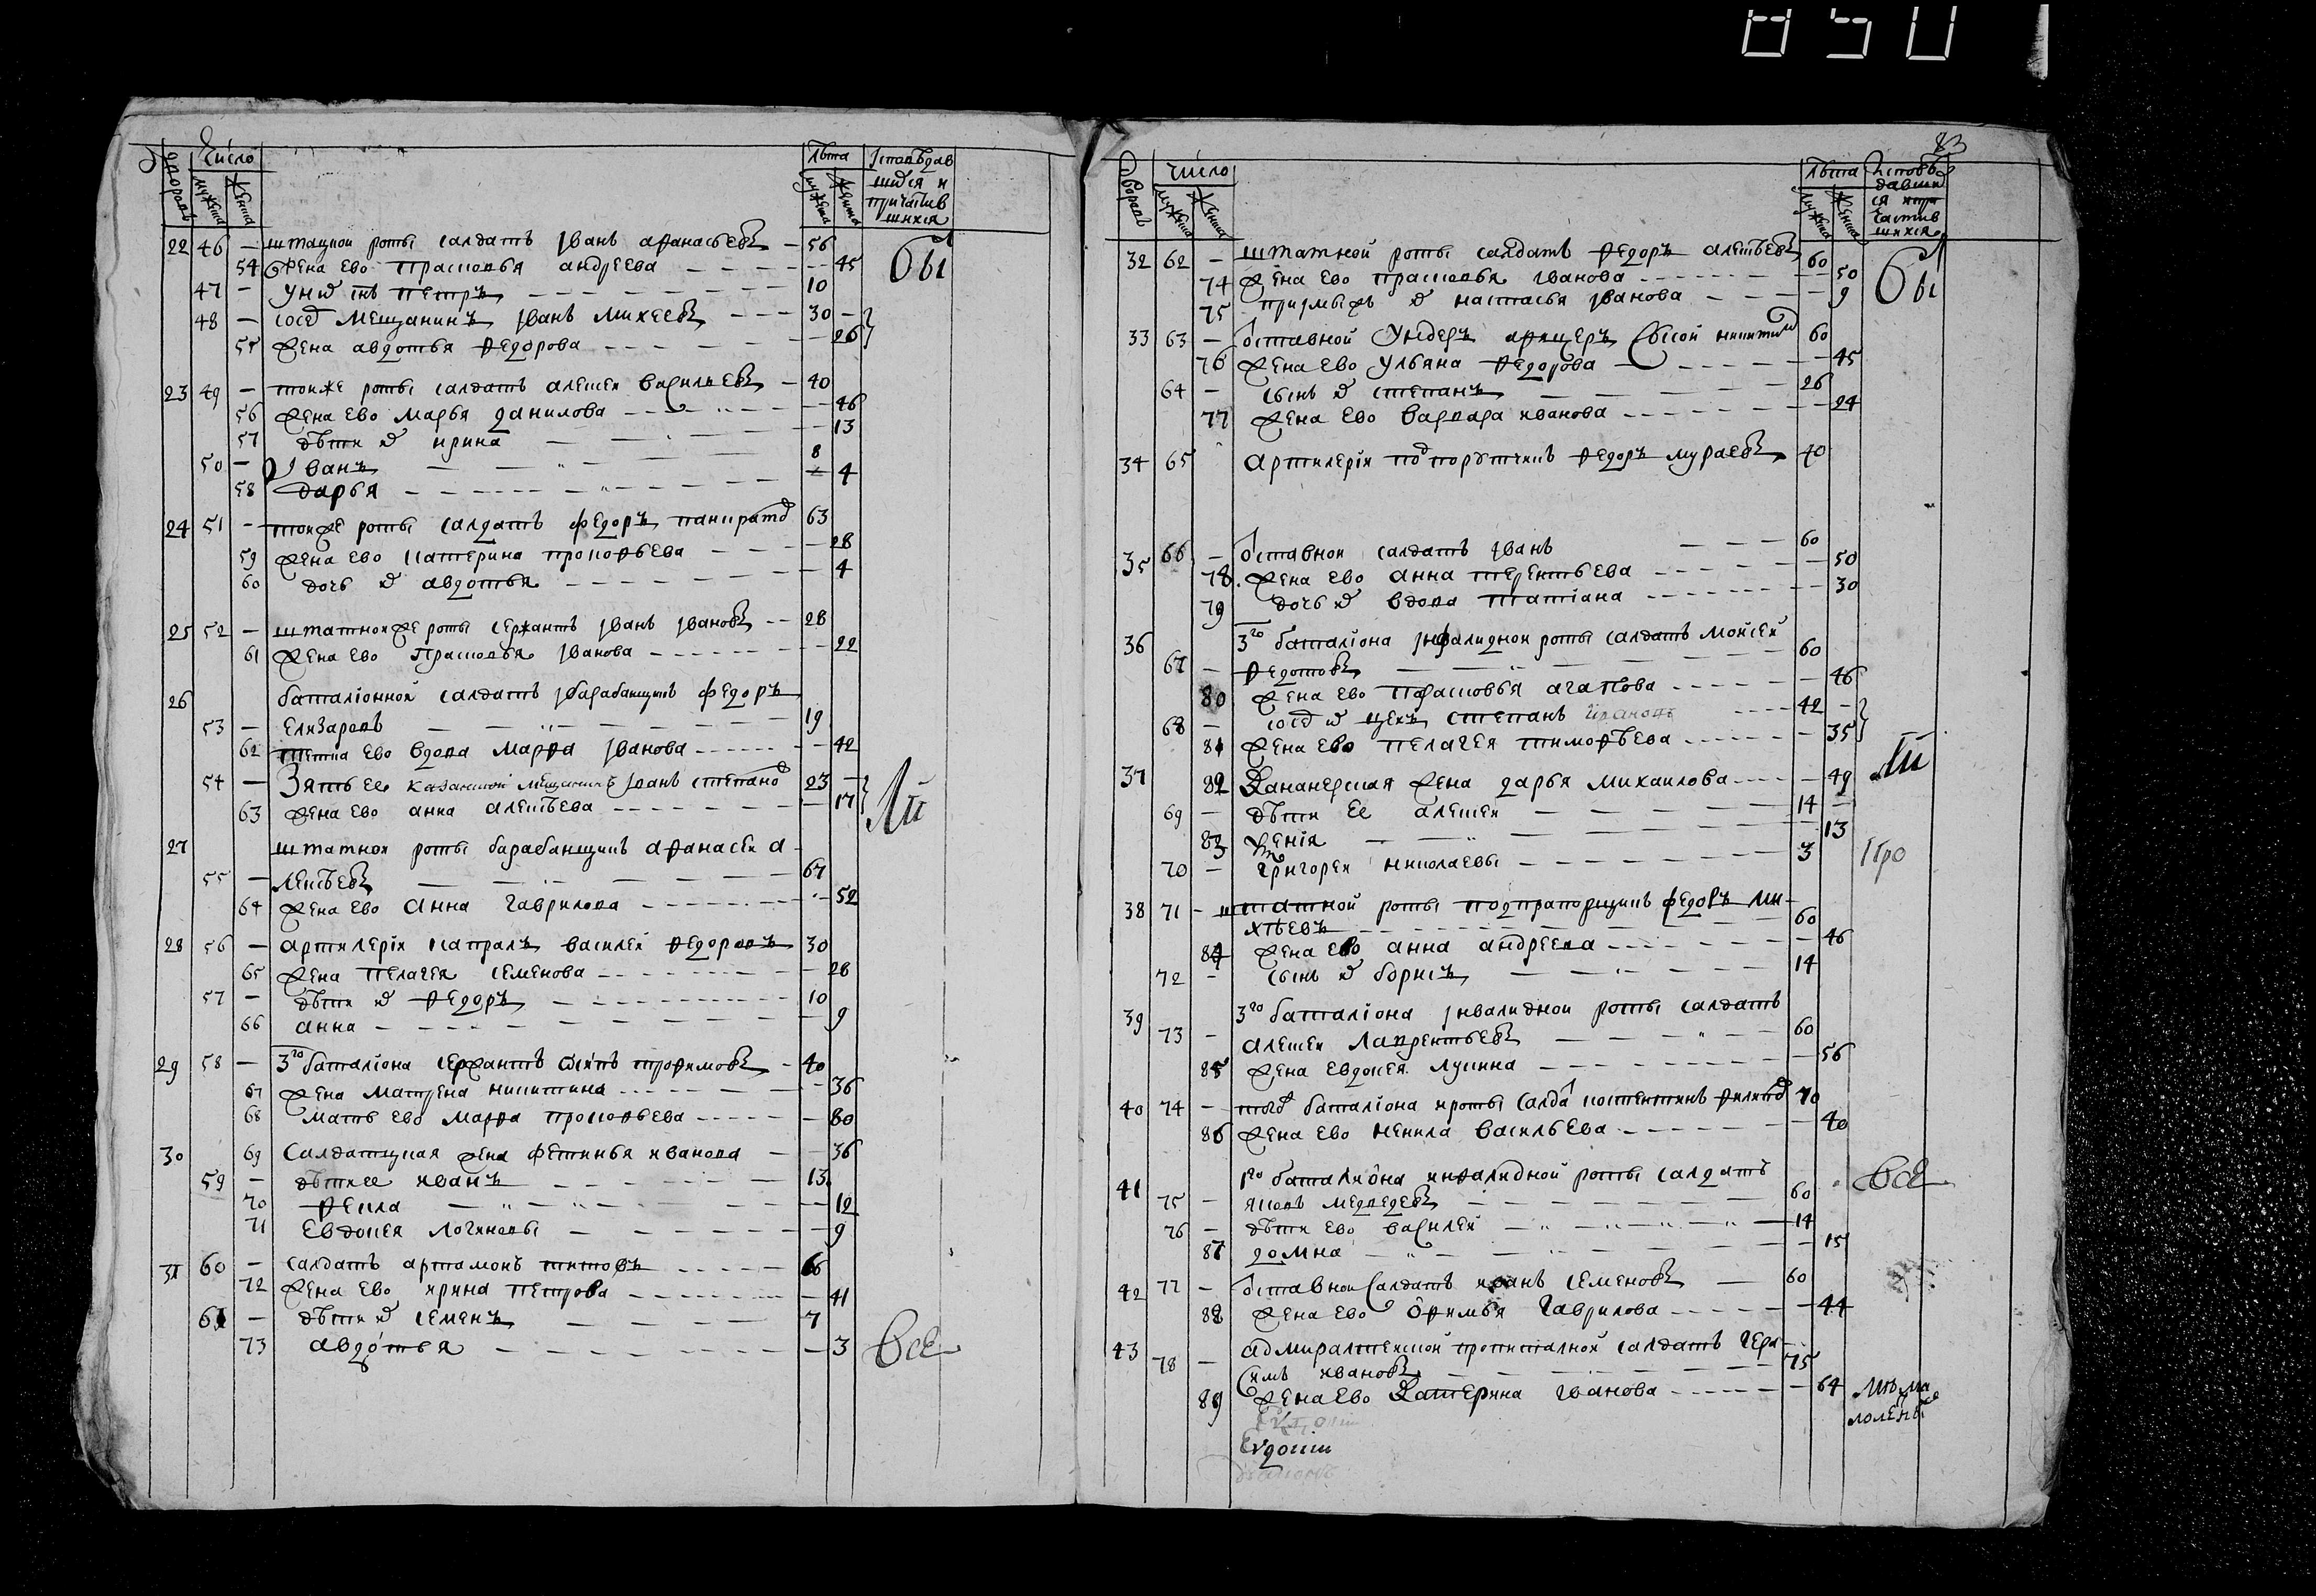 83
Число
лѣта Исповѣдав
дворовъ мужеска женска мужеска женска шихся и
причастив
шихся
22 46 – штацкой роты салдатъ Іванъ афанасьевъ – 56
54 жена ево прасковья андреева – 45 Бы
47 – у них сн҃ъ петръ 10
48 – сосѣд мещанинъ Іванъ михеевъ 30 –
55 жена авдотья федорова – 26
23 49 – тоиже роты салдатъ алексеи васильевъ – 40
56 жена ево марья данилова – 46
57 дѣти их ирина – 13
50 – Іванъ 8
58 дарья – 4
24 51 – тоиже роты салдатъ федоръ панкратов 63
59 жена ево катерина прокофьева – 28
60 дочь их авдотья – 4
25 52 – штатнои же роты сержантъ Іванъ Івановъ 28
61 жена ево Прасковья Іванова – 22
26 баталіоннои салдатъ барабанщикъ федоръ
53 – Елизаровъ 19
62 тетка ево вдова марфа Іванова – 42
54 – Зять ее казанской мещанинъ Іванъ степанов 23 –
63 жена ево анна алексѣева – 17 ли
27 штатнои роты барабанщикъ афанасеи а
55 – лексѣевъ 67
64 жена ево анна гаврилова – 52
28 56 – артилеріи капралъ василеи федоровъ 30
65 жена пелагея семенова – 28
57 – дѣти их федоръ 10
66 анна – 9
29 58 – 3го баталіона сержантъ осипъ трофимовъ – 40
67 жена матрена никитина – 36
68 мать ево марфа прокофьева – 80
30 69 Салдатцкая жена фетинья иванова – 36
59 – дѣти ее иванъ 13
70 фекла – 12
71 Евдокея логиновы – 9
31 60 – салдатъ артамонъ титовъ 66
72 жена ево ирина петрова – 41
61 – дѣти их семенъ 7
73 авдотья – 3 Все
Число лѣта Исповѣ
дворовъ мужеска женска мужеска женска давши
ся и при
частив
шихся
32 62 – штатной роты салдатъ федоръ алексѣевъ 60
74 жена ево прасковья Іванова – 50 Бы
75 приімышъ их настасья Іванова – 9
33 63 – Отставной Ундеръ афицеръ Сысой никитин 60
76 жена ево Ульяна федорова – 45
64 – сынъ их степанъ 26
77 жена ево варвара иванова – 24
34 65 артилеріи подпорутчикъ федоръ мураевъ 40
35 66 – Отставнои салдатъ Іванъ 60
78 жена ево анна терентьева – 50
79 дочь их вдова татіана – 30
36 3го баталіона Інвалиднои роты салдатъ Мойсеи
67 – федотовъ 60
80 жена ево прасковья агапова – 46
68 – сосѣд их степанъ 42 –
81 жена ево пелагея тимофѣева – 35
ли
37 82 Кананерская жена дарья михаилова – 49
69 – дѣти ее алексеи 14 –
83 – 13
70 – григореи николаевы 3 Про
38 71 – штатной роты подпрапорщикъ федоръ ми
хѣевъ 60
84 жена ево анна андреева – 46
72 – сынъ их борисъ 14
39 3го баталіона Інвалиднои роты салдатъ
73 – алексеи лаврентьевъ 60
85 жена евдокея лукина – 56
40 74 – того баталіона и роты салда костентинъ филипов 70
86 жена ево ненила васильева – 40
41 1го баталиона инвалидной роты салдатъ
75 – яковъ медведевъ 60 Все
76 – дѣти ево василеи 14
87 домна – 15
42 77 – Отставнои Салдатъ иванъ семеновъ 60
88 жена ево офимья гаврилова – 44
43 адмиралтенской пропиталнои салдатъ гера
78 – симъ ивановъ 75
89 жена ево Катерина Іванова – 64
Евдоким